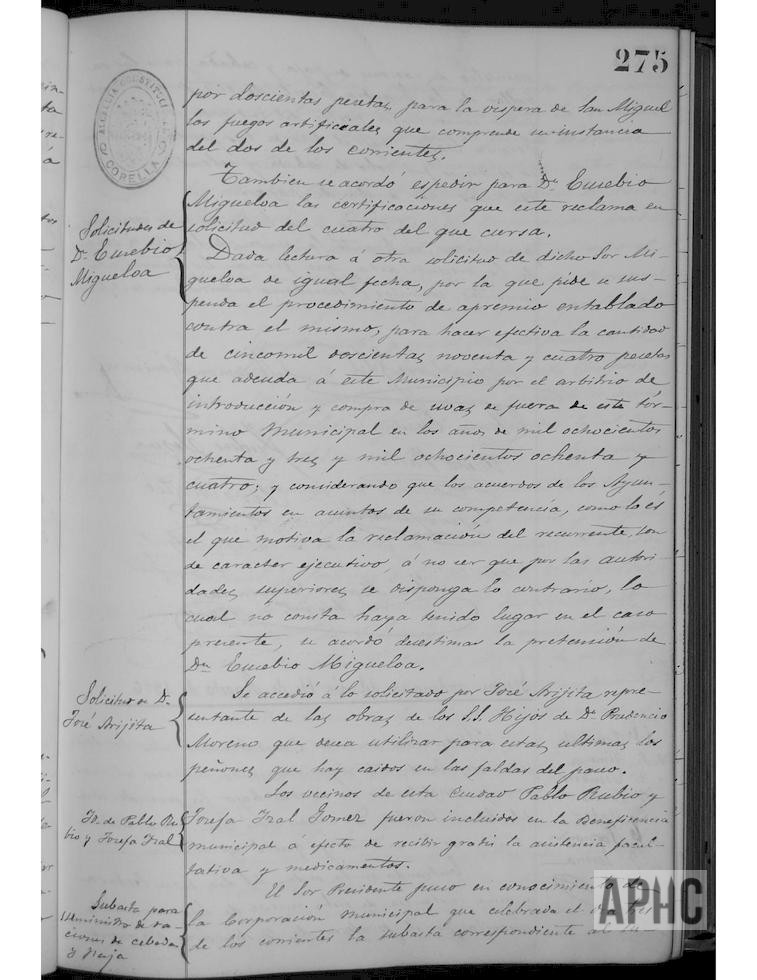 275
ALCALDIA CONSTITUCIONAL
CORELLA
por doscientas pesetas, para la vispera de San Miguel
los fuegos artificiales que comprende su instancia
del dos de los corrientes.
Tambien se acordó espedir para Dn Eusebio
Migueloa las certificaciones que este reclama en
solicitud del cuatro del que cursa.
Solicitudes de
Dn Eusebio
Migueloa
Dada lectura á otra solicitud de dicho Sor Mi-
gueloa de igual fecha, por la que pide se sus-
penda el procedimiento de apremio entablado
contra el mismo, para hacer efectiva la cantidad
de cincomil doscientas noventa y cuatro pesetas
que adeuda á este Municipio por el arbitrio de
introducción y compra de uvas de fuera de este tér-
mino Municipal en los años de mil ochocientos
ochenta y tres y mil ochocientos ochenta y
cuatro; y considerando que los acuerdos de los Ayun-
tamientos en asuntos de su competencia, como lo és
el que motiva la reclamación del recurrente, son
de caracter ejecutivo, á no ser que por las autori-
dades superiores se disponga lo contrario, lo
cual no consta haya tenido lugar en el caso
presente, se acordó desestimar la pretensión de
Dn Eusebio Migueloa.
Solicitud de Dn
José Arijita
Se accedió á lo solicitado por José Arijita repre-
sentante de las obras de los S.S. Hijos de Dn Prudencio
Moreno que desea utilizar para estas ultimas los
peñones que hay caidos en las faldas del paseo.
Los vecinos de esta Ciudad Pablo Rubio y
Id. de Pablo Ru-
bio y Josefa Iral
Josefa Iral Gomez fueron incluidos en la Beneficencia
municipal á efecto de recibir gratis la asistencia facul-
tativa y medicamentos.
El Sor Presidente puso en conocimiento de
Subasta para
suministro de ra-
ciones de cebada
y Paja
la Corporación municipal que celebrada el dia tres
de los corrientes la subasta correspondiente al su-
APHC